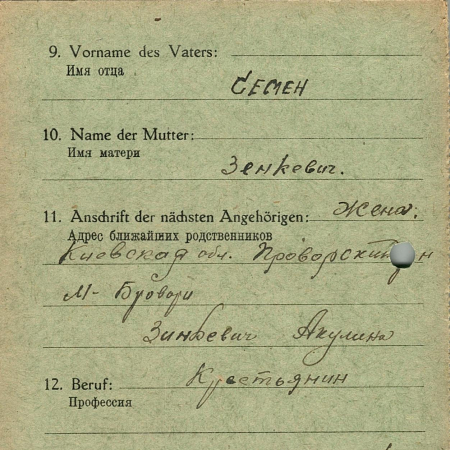 9. Vorname des Vaters:
Имя отца
Семен
10. Name der Mutter:
Имя матери
Зенкевич.
11. Anschrift der nächsten Angehörigen: Жена:
Адрес ближайших родственников
Киевская обл.
М- Бровари
Зинкевич Акулина
12. Beruf: Крестьянин
Профессия